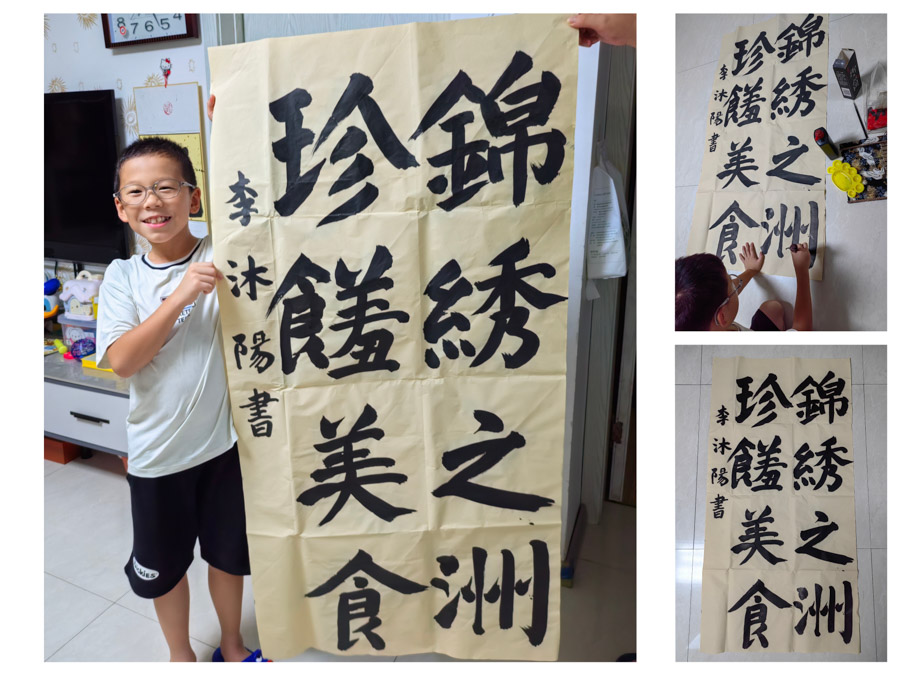 8 7 6 5 4
錦綉之洲
珍饈美食
李沐陽書
錦綉之洲
珍饈美食
李沐陽書
錦綉之洲
珍饈美食
李沐陽書